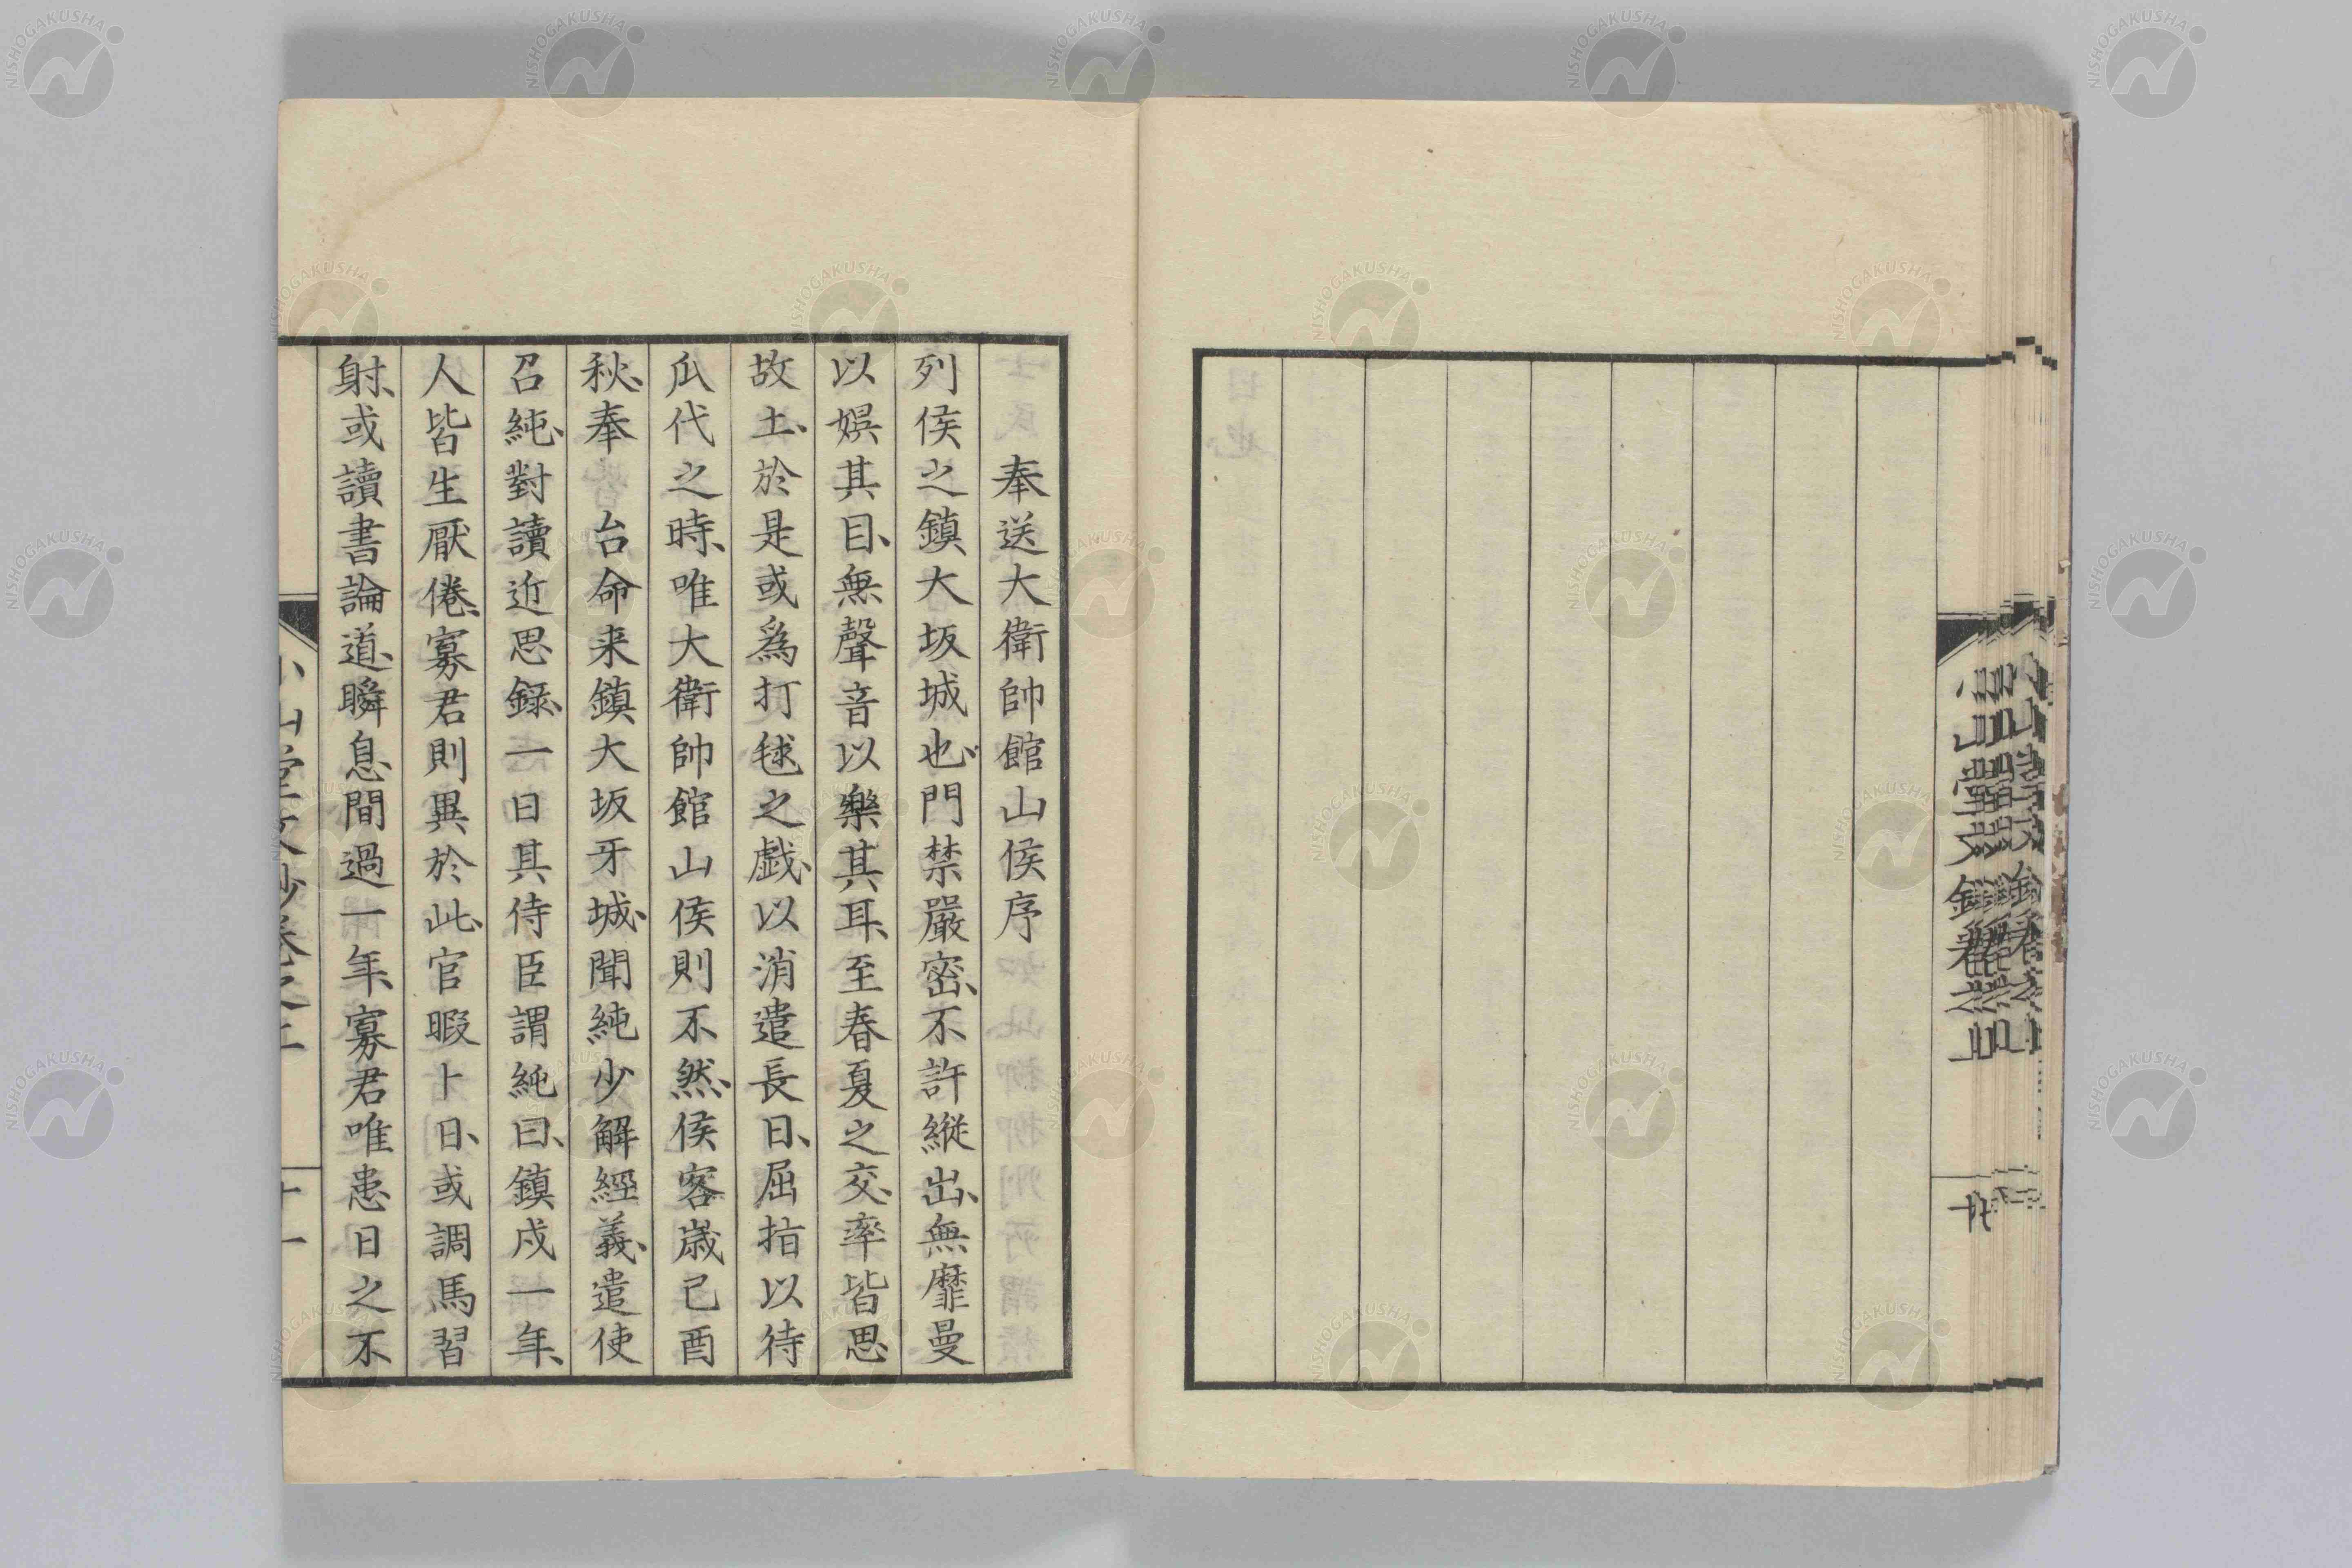 奉送大衛帥館山侯序
列侯之鎮大坂城也、門禁嚴密、不許縦出、無靡曼
以娯其目、無聲音以樂其耳、至春夏之交、率皆思
故土、於是或為打毬之戯、以消遣長日、屈指以待
瓜代之時、唯大衛帥館山侯則不然、侯客歳己酉
秋、奉　台命来鎮大坂牙城、聞純少解經義、遣使
召純、對讀近思録、一日其侍臣謂純曰、鎮戍一年、
人皆生厭倦、寡君則異於此、官暇卜日、或調馬習
射、或讀書論道、瞬息間過一年、寡君唯患日之不
小山堂文鈔巻之二
十一
小山堂文鈔巻之上
廿
NISHOGAKUSHA